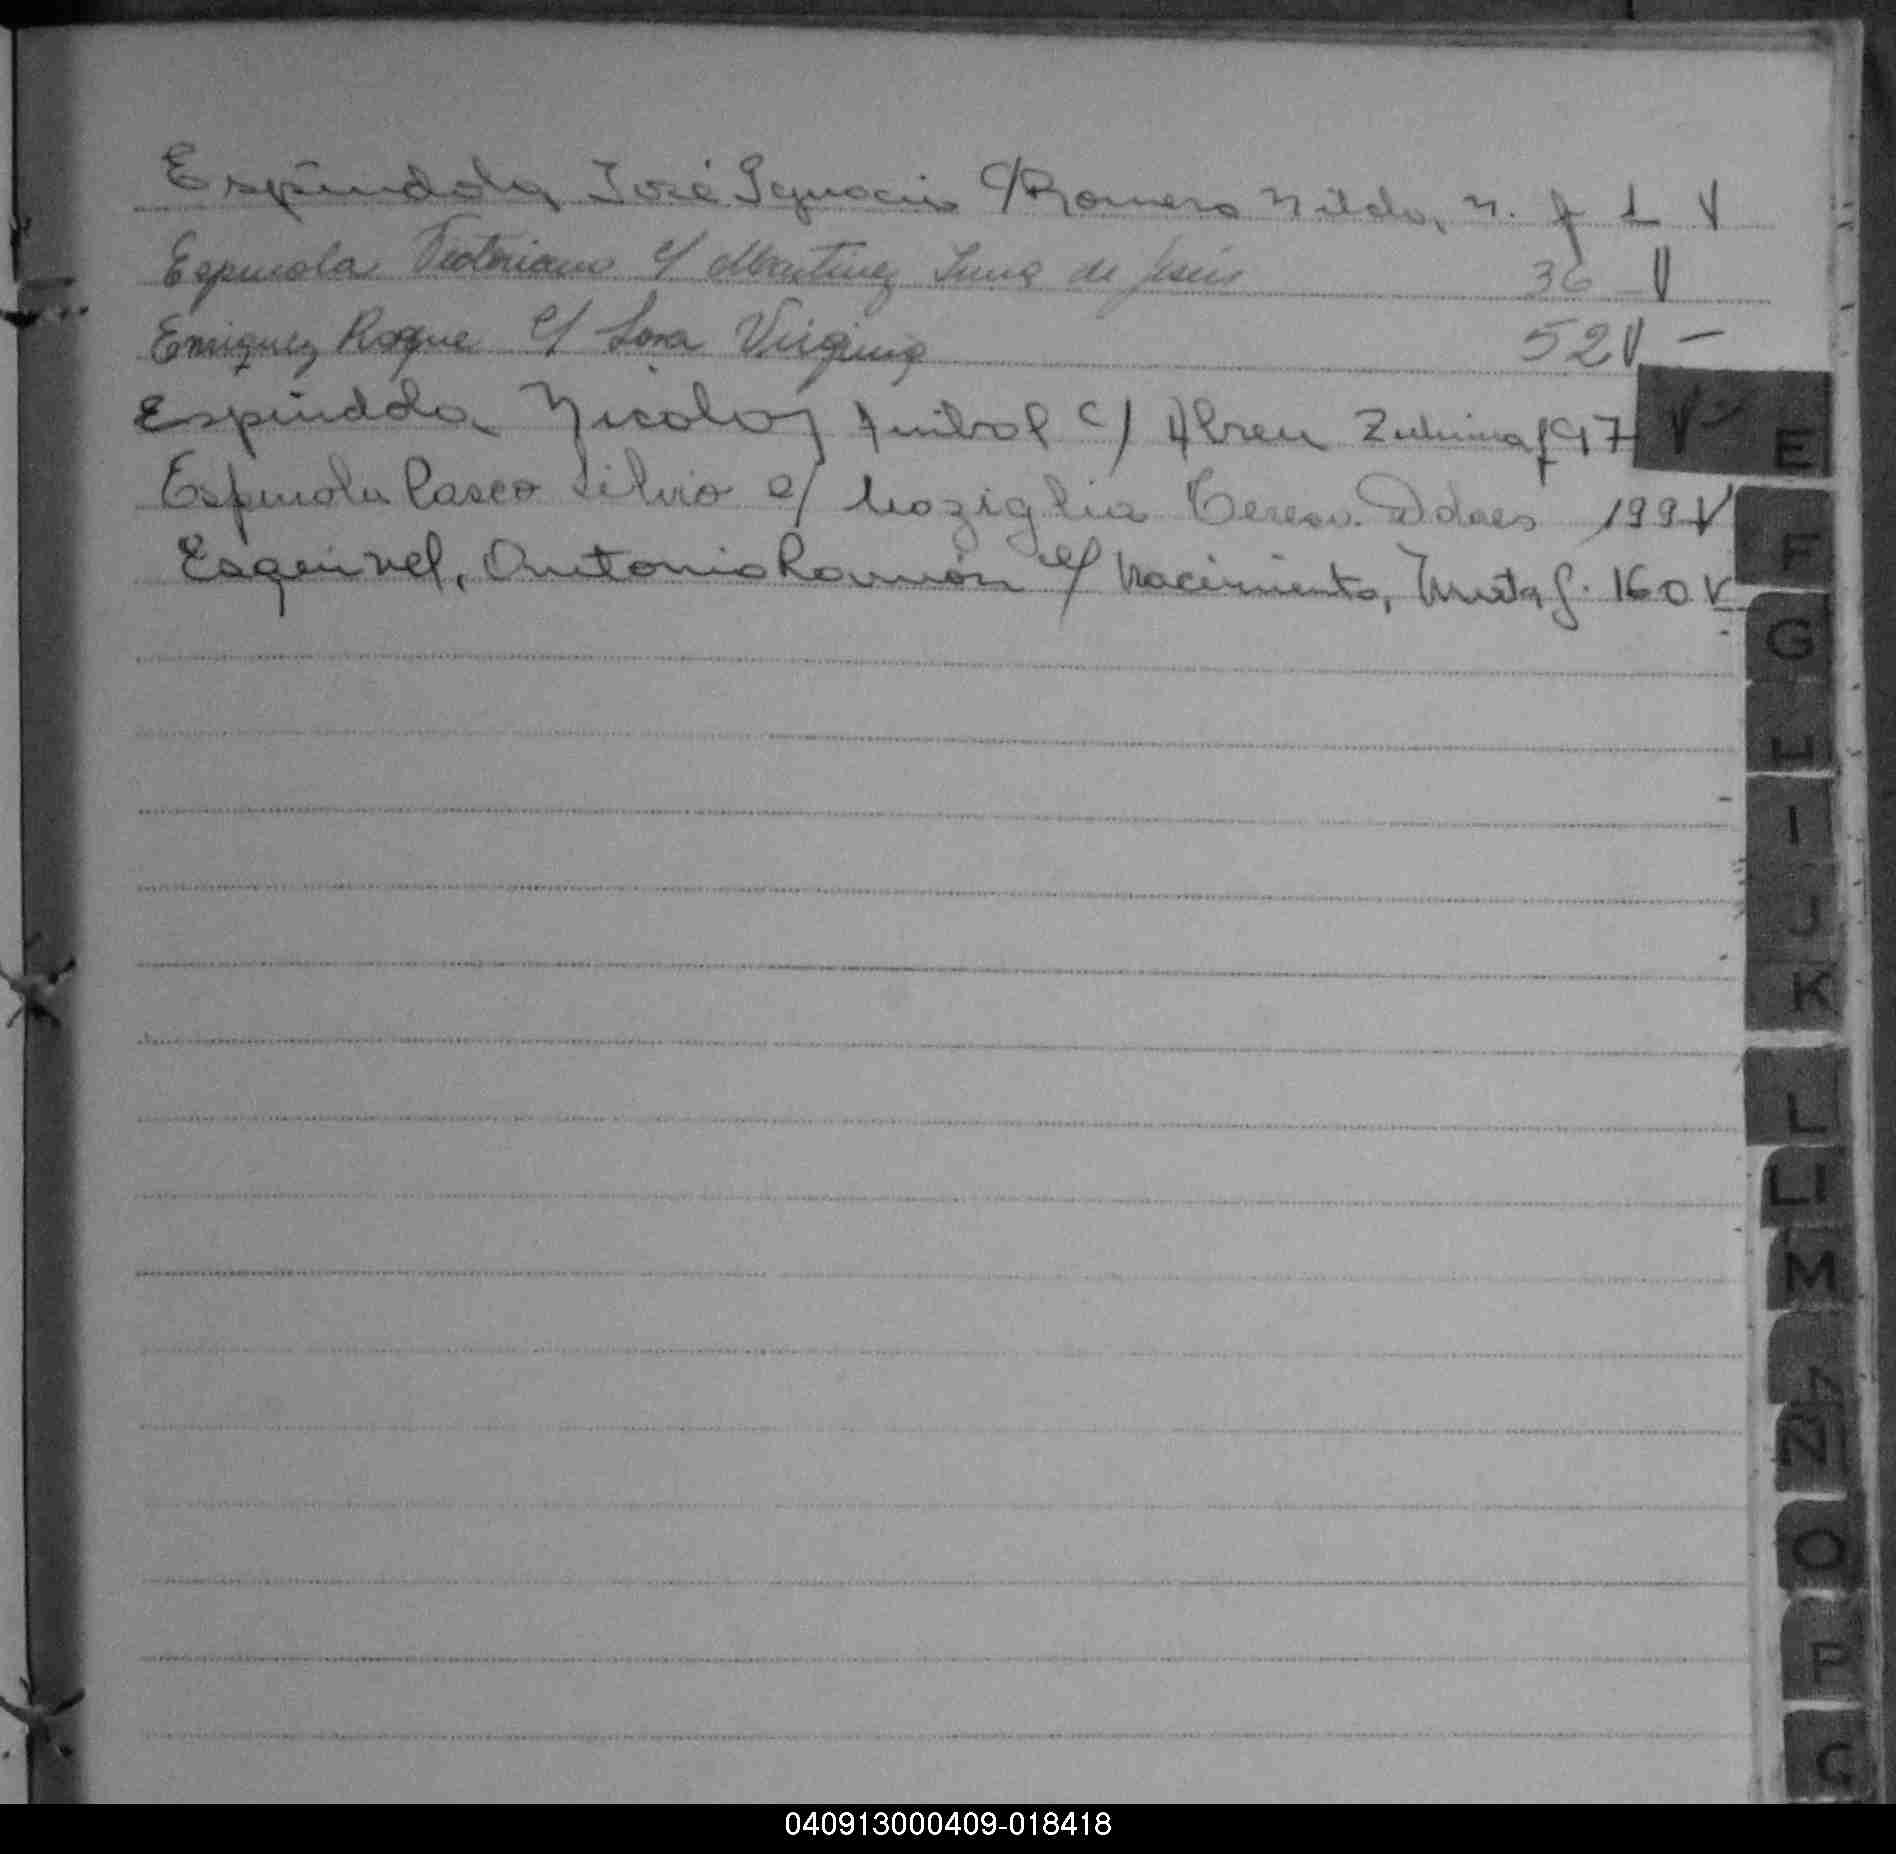 Espindola José Ignacio c/ Romero Nilda, N. f 1 V
Espinola Victoriano c/ Martinez Juna de Jesús 36 V
Enriquez Roque c/ Sosa Virginia 52 V -
Espindola Nicolas Anibal c/ Abreu Zulema f 97 V
Espinola Casco Silvio c/ Teresa 199 V
Esquivel, Antonio Ramón c/ Nacimiento, 160 V
E
F
G
H
I
J
K
L
Ll
M
N
Ñ
O
P
040913000409-018418